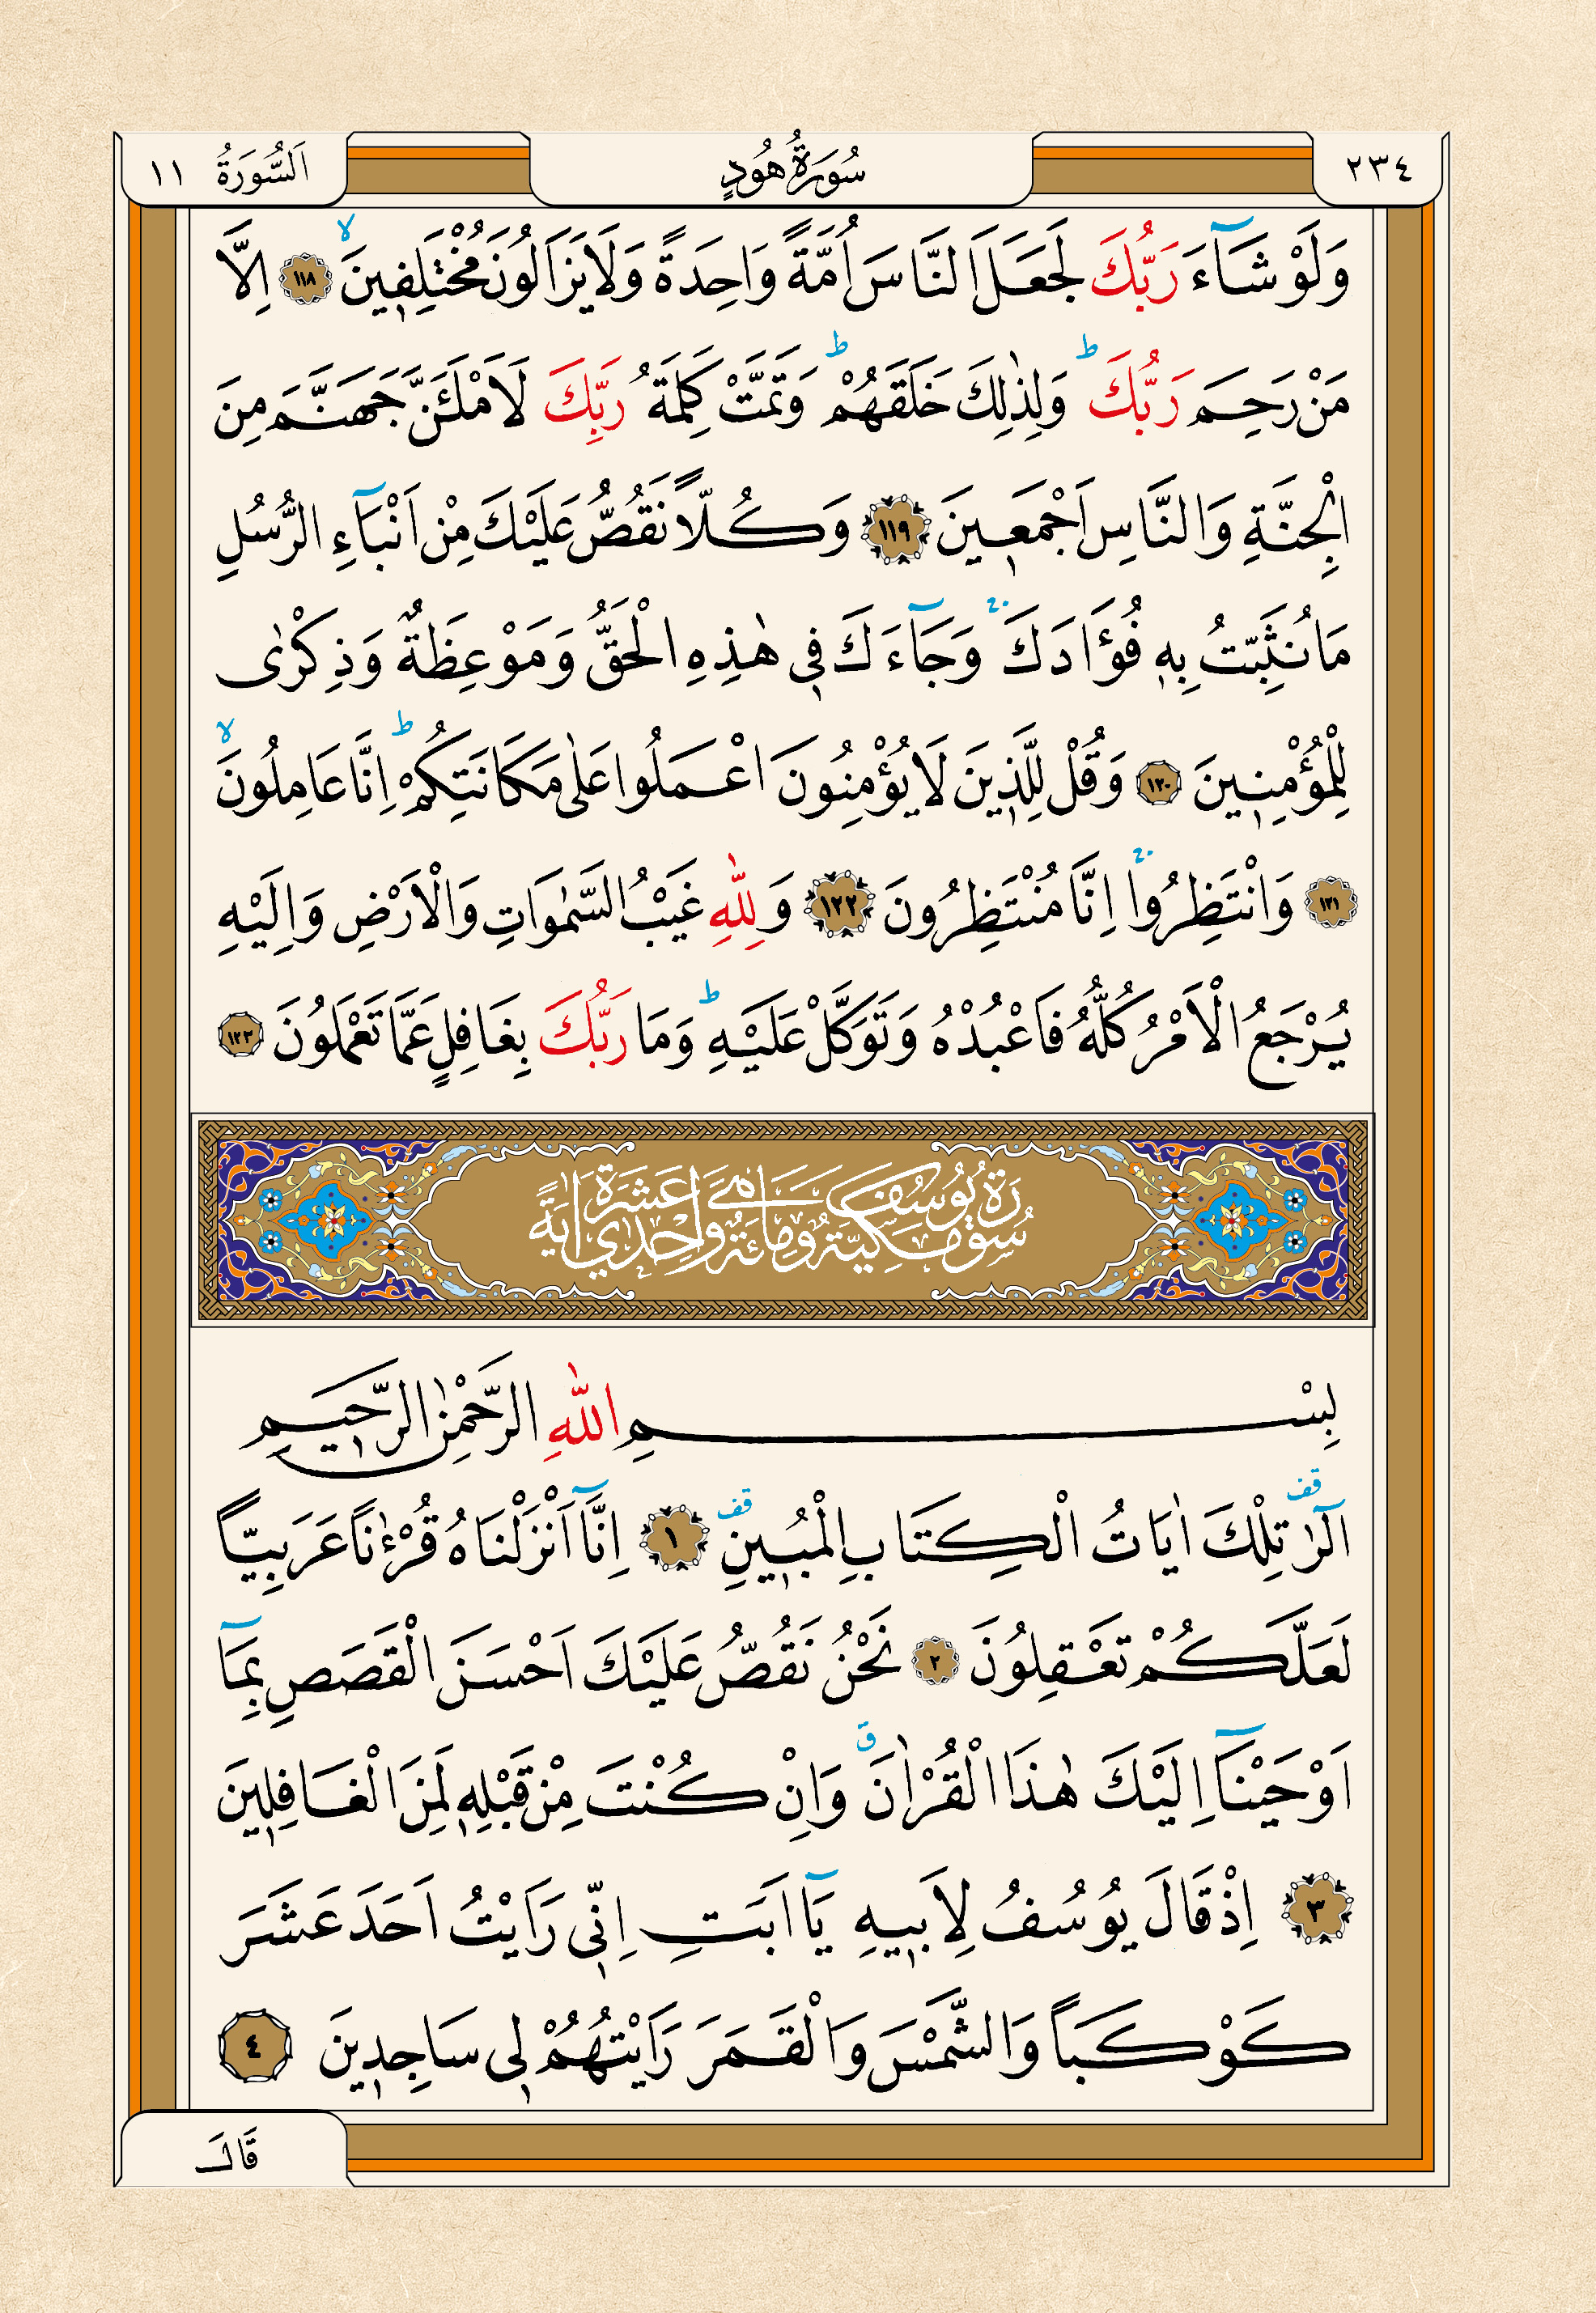 ٢٣٤
سُورَةُ هُودٍ
اَلسُّورَةُ ١١
وَلَوْ شَآءَ رَبُّكَ لَجَعَلَ النَّاسَ اُمَّةً وَاحِدَةً وَلَا يَزَالُونَ مُخْتَلِفٖينَۙ ١١٨ اِلَّا
مَنْ رَحِمَ رَبُّكَۜ وَلِذٰلِكَ خَلَقَهُمْۜ وَتَمَّتْ كَلِمَةُ رَبِّكَ لَاَمْلَـَٔنَّ جَهَنَّمَ مِنَ
الْجِنَّةِ وَالنَّاسِ اَجْمَعٖينَ ١١٩ وَكُلّاً نَقُصُّ عَلَيْكَ مِنْ اَنْبَٓاءِ الرُّسُلِ
مَا نُثَبِّتُ بِهٖ فُؤٰادَكَۚ وَجَٓاءَكَ فٖي هٰذِهِ الْحَقُّ وَمَوْعِظَةٌ وَذِكْرٰى
لِلْمُؤْمِنٖينَ ١٢٠ وَقُلْ لِلَّذٖينَ لَا يُؤْمِنُونَ اعْمَلُوا عَلٰى مَكَانَتِكُمْۜ اِنَّا عَامِلُونَۙ
١٢١ وَانْتَظِرُواۚ اِنَّا مُنْتَظِرُونَ ١٢٢ وَلِلّٰهِ غَيْبُ السَّمٰوَاتِ وَالْاَرْضِ وَاِلَيْهِ
يُرْجَعُ الْاَمْرُ كُلُّهُ فَاعْبُدْهُ وَتَوَكَّلْ عَلَيْهِۜ وَمَا رَبُّكَ بِغَافِلٍ عَمَّا تَعْمَلُونَ ١٢٣
سُورَةُ يُوسُفَ مَكِّيَّةٌ وَهِيَ مِائَةٌ وَاِحْدٰي عَشَرَةَ اٰيَةً
بِسْمِ اللّٰهِ الرَّحْمٰنِ الرَّحٖيمِ
الٓرٰ۠ تِلْكَ اٰيَاتُ الْكِتَابِ الْمُبٖينِ۠ ١ اِنَّٓا اَنْزَلْنَاهُ قُرْءٰناً عَرَبِياًّ
لَعَلَّكُمْ تَعْقِلُونَ ٢ نَحْنُ نَقُصُّ عَلَيْكَ اَحْسَنَ الْقَصَصِ بِمَٓا
اَوْحَيْنَٓا اِلَيْكَ هٰذَا الْقُرْاٰنَۗ وَاِنْ كُنْتَ مِنْ قَبْلِهٖ لَمِنَ الْغَافِلٖينَ
٣ اِذْ قَالَ يُوسُفُ لِاَبٖيهِ يَٓا اَبَتِ اِنّٖي رَاَيْتُ اَحَدَ عَشَرَ
كَوْكَباً وَالشَّمْسَ وَالْقَمَرَ رَاَيْتُهُمْ لٖي سَاجِدٖينَ ٤
قَالَ